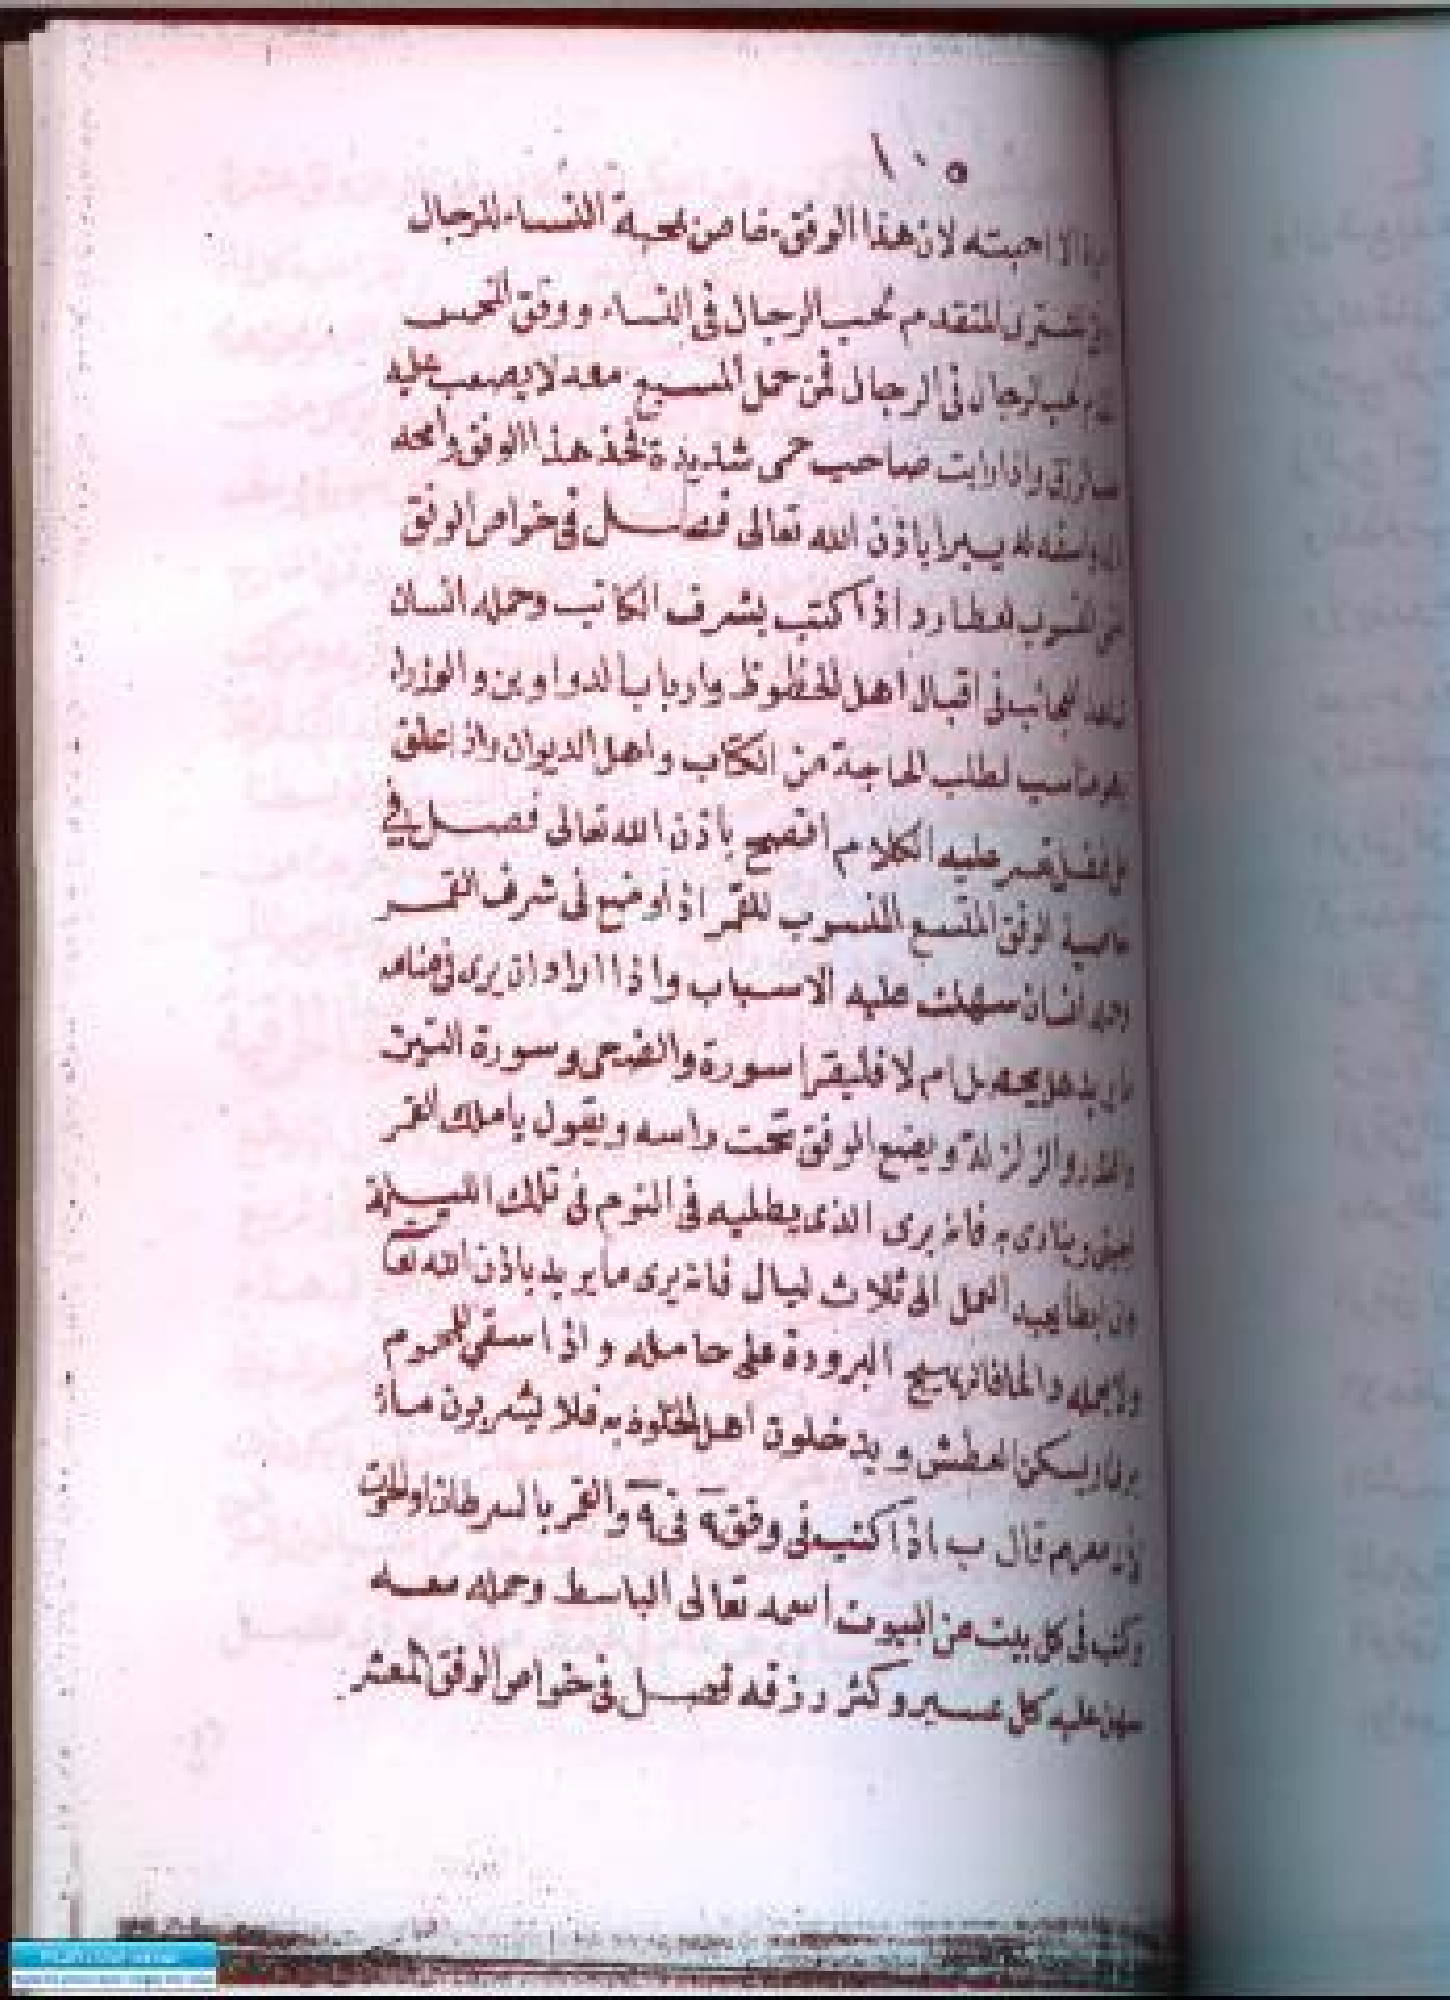 ١٠٥
الا احبته لان هذا الوفق خاص لمحبة النساء للرجال
المشترى المتقدم لمحب الرجال فى النساء ووفق الشمس
لرجال فى الرجال فمن حمل المسبع معه لا يصعب عليه
واذا رايت صاحب حمى شديدة فخذ هذا الوفق وامحه
واسقه له يبرا باذن الله تعالى فصل فى خواص الوفق
المنسوب لعطارد اذا كتب بشرف الكاتب وحمله انسان
العجائب فى اقبال اهل الحظوظ وارباب الدواوين والوزرا
مناسب لطلب الحاجة من الكتاب واهل الديوان واذا علق
على طفل تعسر عليه الكلام افصح باذن الله تعالى فصل فى
خاصية الوفق المتسع المنسوب للقمر اذا وضع فى شرف القمر
انسان سهلت عليه الاسباب واذا اراد ان يرى فى منامه
يحصل ام لا فليقرا سورة والضحى وسورة التين
والزلزلة ويضع الوفق تحت راسه ويقول يا ملك القمر
وينادى به فانه يرى الذى يطلبه فى النوم فى تلك الليلة
وان ابطا يعيد العمل الى ثلاث ليال فانه يرى ما يريد باذن الله تعا
يهيج البرودة على حامله واذا سقى للمحموم
يسكن العطش ويدخلون اهل الخلوة به فلا يشربون ماء
قال ب اذا كتب فى وفق ٩ فى ٩ والقمر بالسرطان او الحوت
وكتب فى كل بيت من البيوت اسمه تعالى الباسط وحمله معه
عليه كل عسير وكثر رزقه فصل فى خواص الوفق المعشر